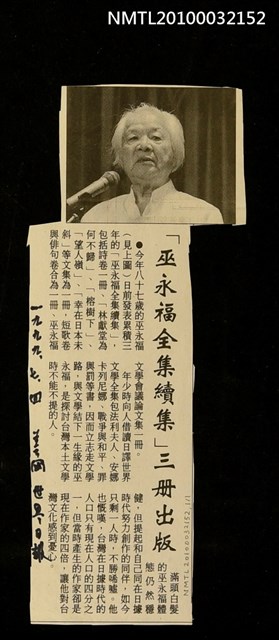 NMTL20100032152
「巫永福全集續集」三冊出版
●今年八十七歲的巫永福
(見上圖)日前發表累積三
年的「巫永福全集續集」，
包括詩卷一冊、「林獻堂為
何不歸」、「榕樹下」、
「望人嶺」、「幸在日本未
斜」等文集為一冊，短歌卷
與俳句卷合為一冊、巫永福
文學會議論文集一冊。
年少時向人借讀日譯世界
文學全集包法利夫人、安娜
卡列尼娜、戰爭與和平、罪
與罰等書，因而立志走文學
路，與文學結下一生緣的巫
永福，是探討台灣本土文學
時不能不提的人。
滿頭白髮
的巫永福體
態仍然穩
健，但提起和自己同在日據
時代努力創作的同伴，如今
只剩一人時，不勝唏噓。他
也慨嘆，台灣在日據時代的
人口只有現在人口的四分之
一，但當時產生的作家卻是
現在作家的四倍，讓他對台
灣文化感到憂心。
一九九九、七、四 美國世界日報